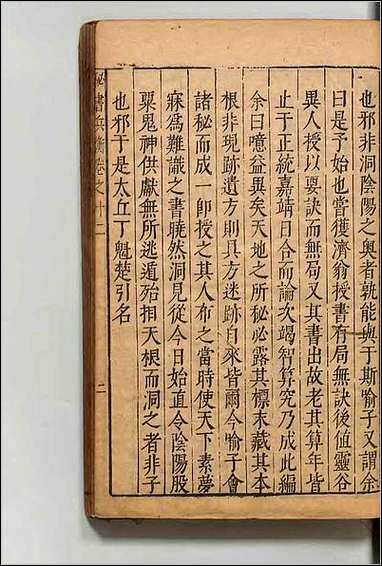 也邪非洞陰陽之奧者孰能與于斯喻子又謂余
曰是予始也嘗獲濟翁授書有局無訣後值靈谷
異人授以要訣而無局又其書出故老其算年皆
止于正統嘉靖日合而論次竭智算究乃成此編
余曰噫益異矣天地之所秘必露其標末藏其本
根非現跡遺方則具方迷跡自來皆爾今喻子會
諸秘而成一師授之其人布之當時使天下素夢
寐為難識之書曉然洞見從今日始直令陰陽股
栗鬼神供獻無所逃遁殆相天根而洞之者非子
也邪于是太丘丁魁楚引名
秘書兵衡志之十二
二